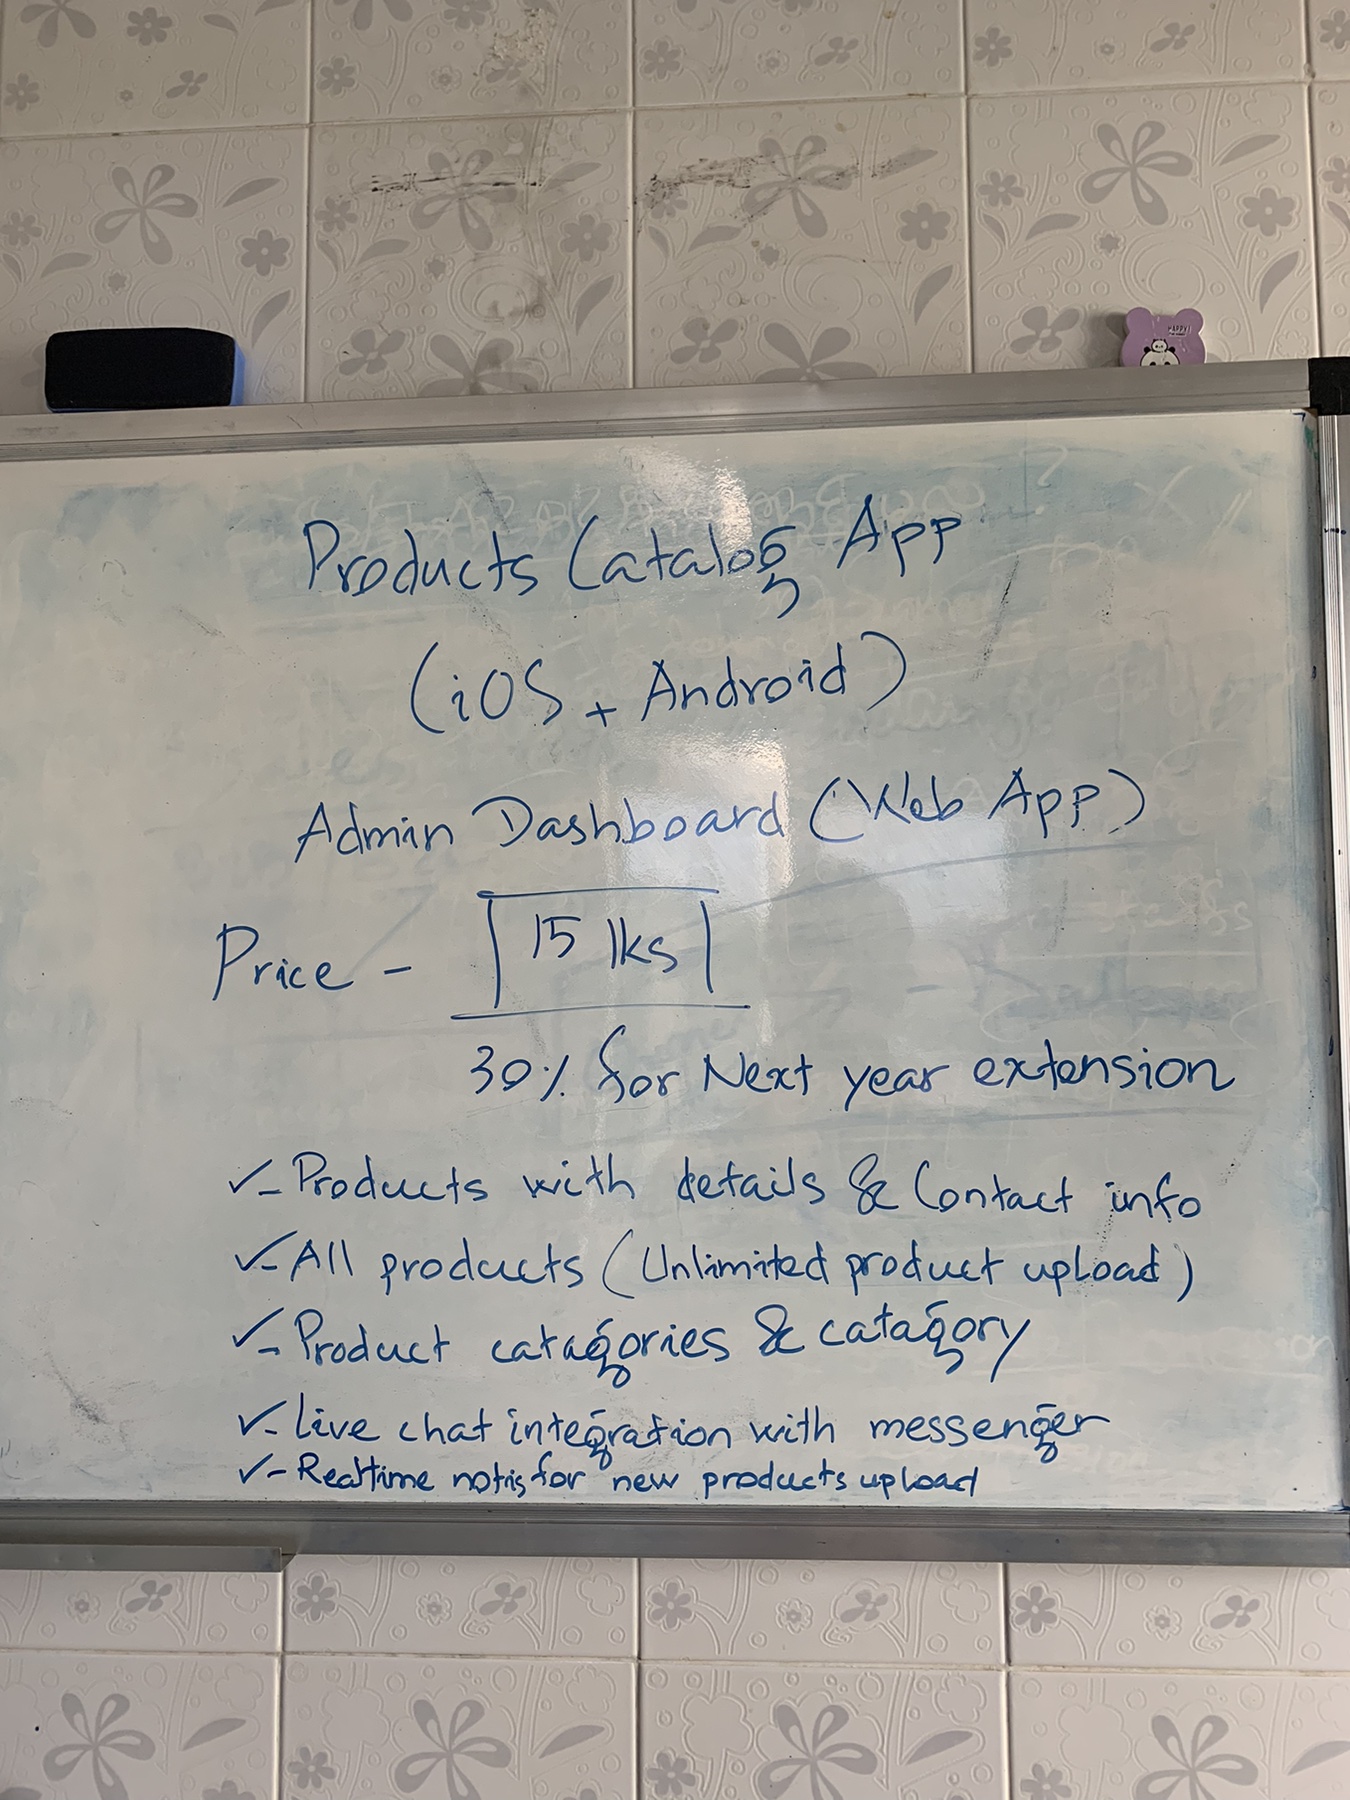 HAPPY!
Products Catalog App
(iOS + Android)
Admin Dashboard (Web App)
Price - 15 lks
30% for Next year extension
✓- Products with details & Contact info
✓- All products (Unlimited product upload)
✓- Product catagories & catagory
✓- Live chat integration with messenger
✓- Realtime notis for new products upload